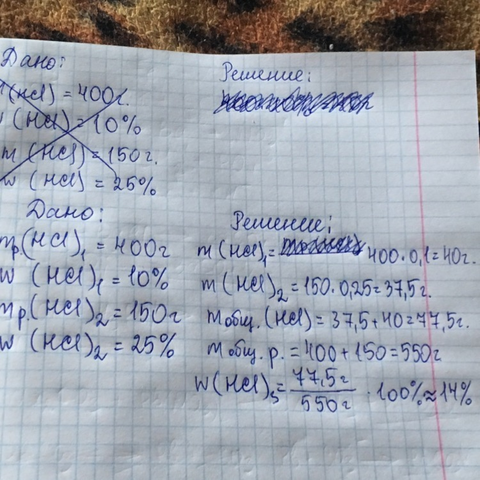 Дано:
m(HCl) = 400г.
w (HCl) = 10%
m (HCl) = 150г.
w (HCl) = 25%
Решение:
Дано:
mр.(HCl)₁ = 400г
w (HCl)₁ = 10%
mр.(HCl)₂ = 150г
w (HCl)₂ = 25%
Решение:
m (HCl)₁ = 400·0,1=40г.
m (HCl)₂ = 150·0,25=37,5г.
mобщ. (HCl) = 37,5+40=77,5г.
mобщ. р. = 400+150=550г
w(HCl)₃ = 77,5г / 550г · 100% ≈ 14%